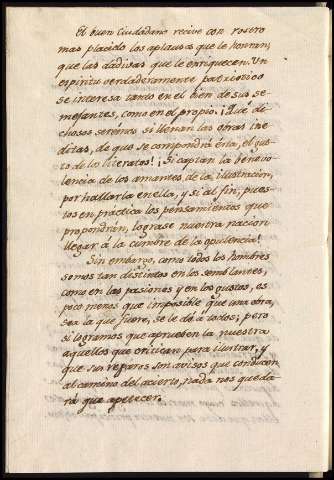 El buen Ciudadano recive con rostro
mas placido los aplausos que le honran,
que las dadivas que le enriquecen. Un
espiritu verdaderamente patriotico
se interesa tanto en el bien de sus se-
mejantes, como en el propio. ¡Qué di-
chosos serémos si llenan las obras ine-
ditas, de que se compondrá ésta, el gus-
to de los literatos! ¡Si captan la benevo-
lencia de los amantes de la ilustracion,
por hallarla en ella, y si al fin, pues-
tos en práctica los pensamientos que
propondrán, lograse nuestra nacion
llegar á la cumbre de la opulencia!
Sin embargo, como todos los hombres
somos tan distintos en los semblantes,
como en las pasiones y en los gustos, es
poco menos que imposible que una obra,
sea la que fuere, se le dé á todos; pero
si logramos que aprueben la nuestra
aquellos que critican para ilustrar, y
que sus reparos son avisos que conducen
al camino del acierto, nada nos queda-
rá que apetecer.